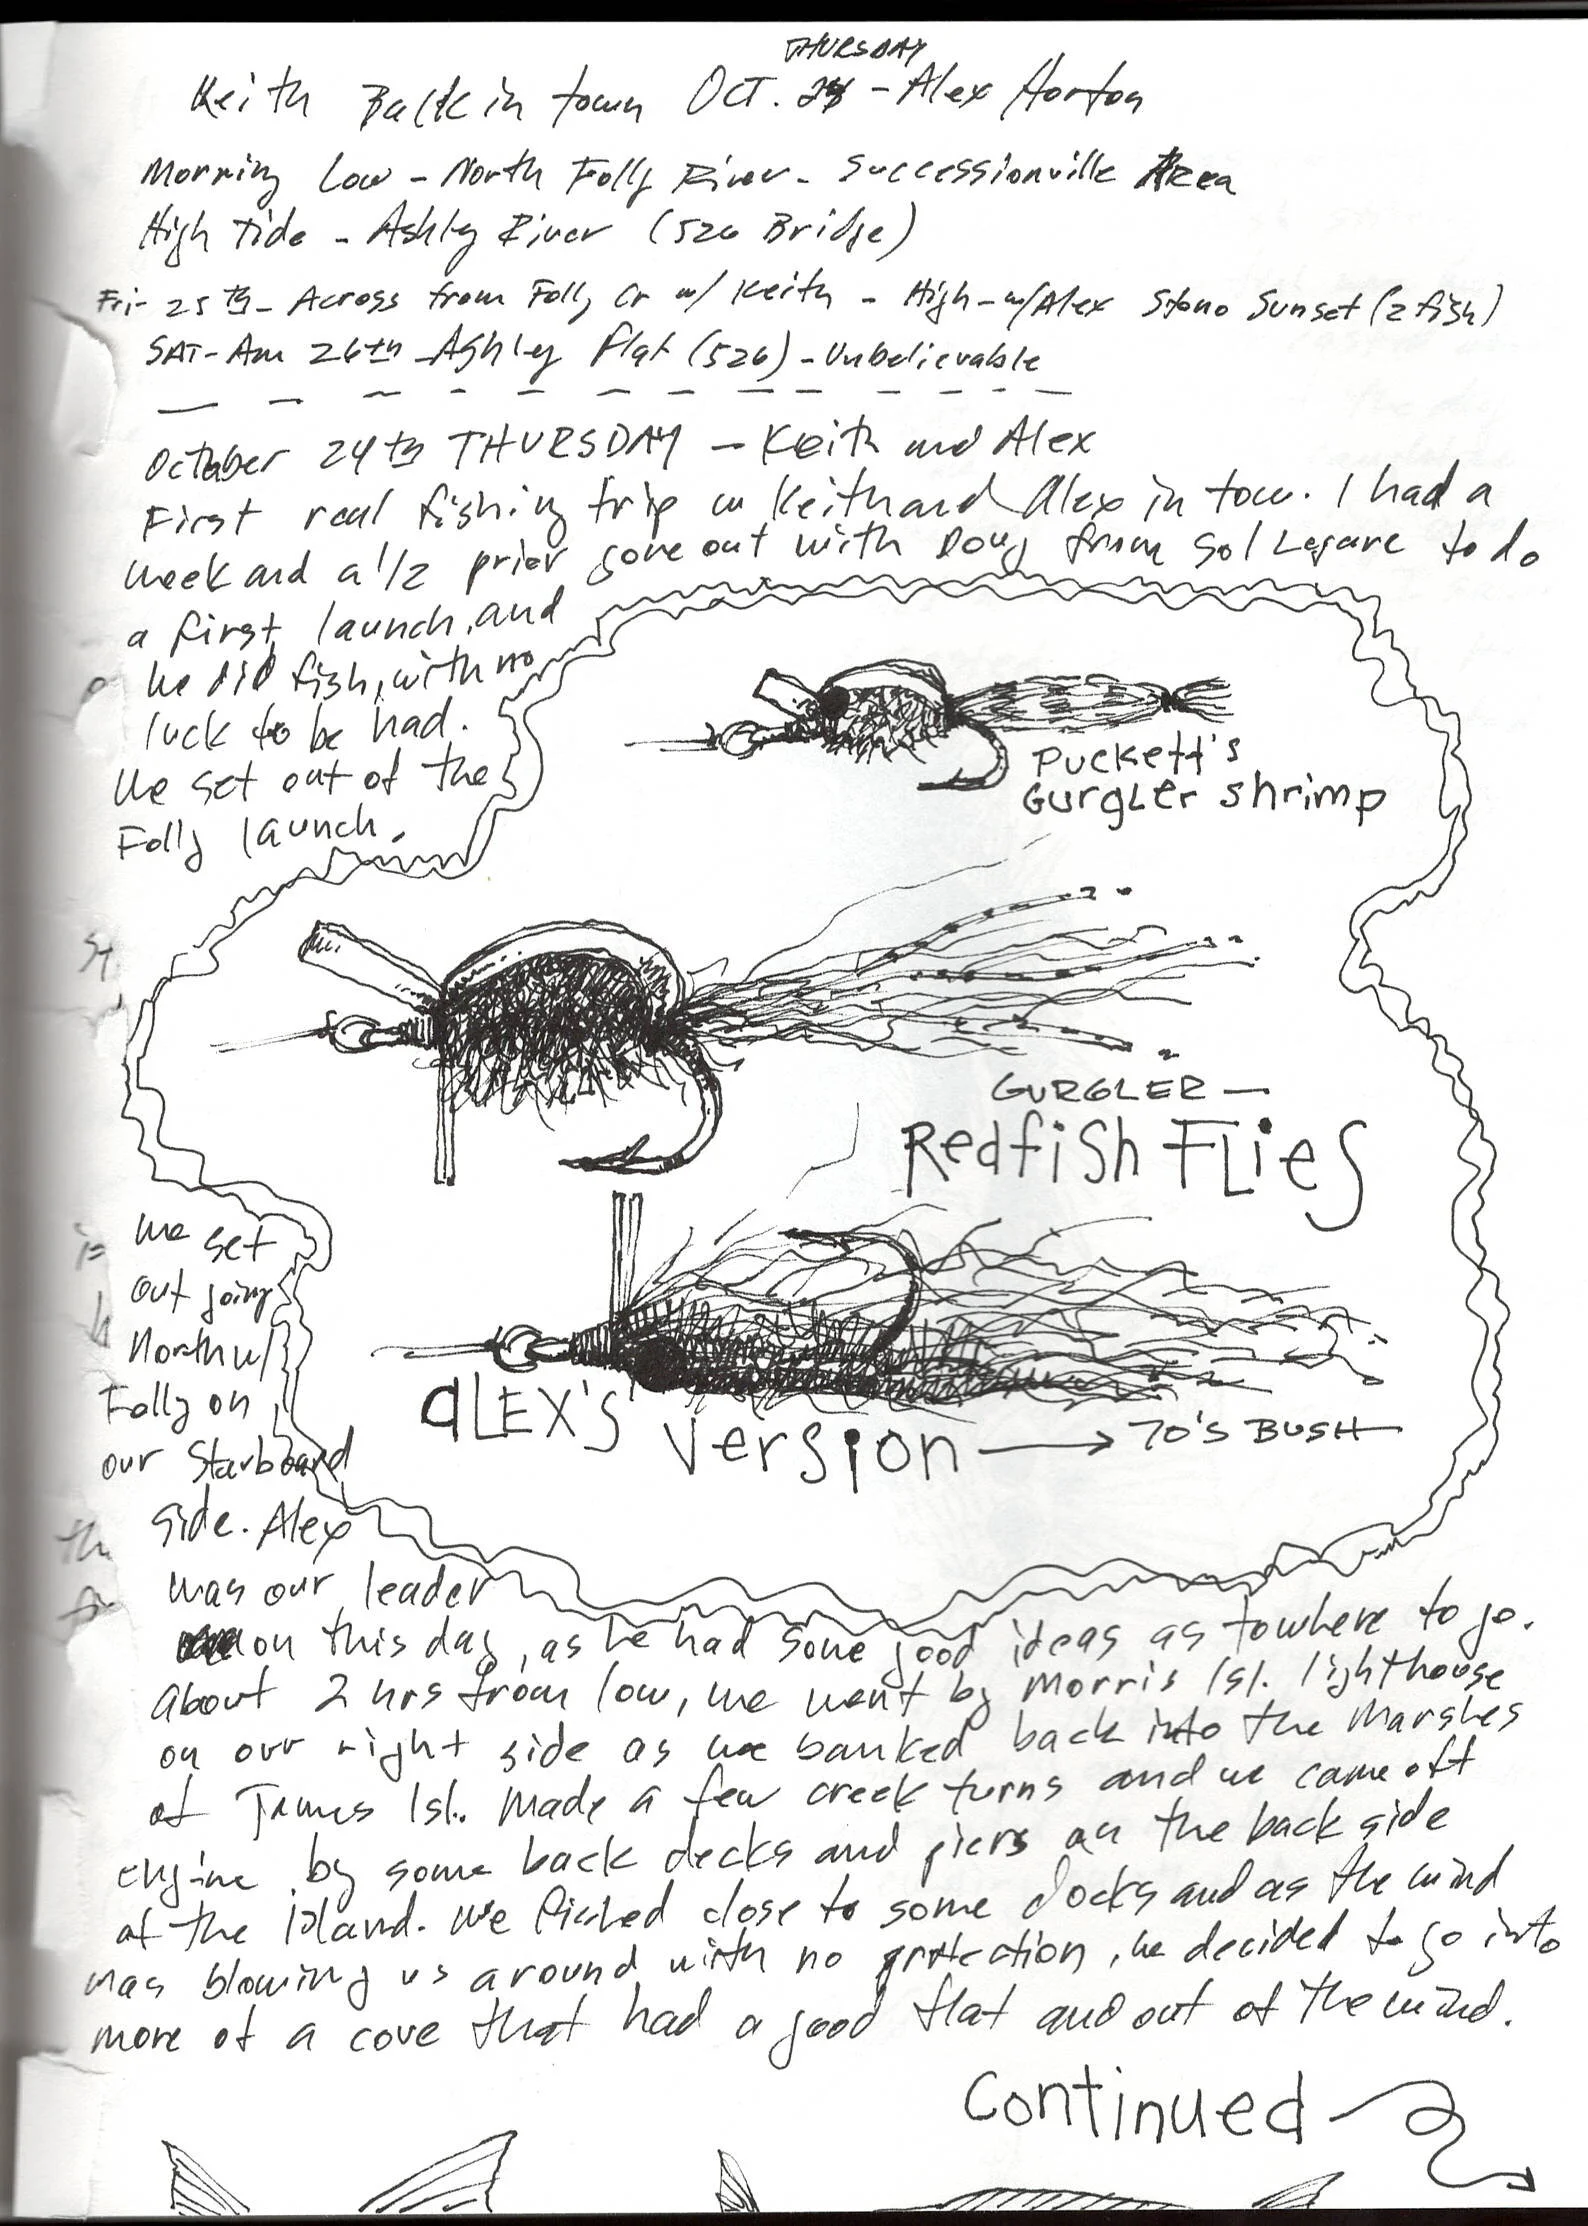 THURSDAY
Keith Back in town OCT. 24 - Alex Horton
Morning Low - North Folly River - Successionville Area
High Tide - Ashley River (526 Bridge)
Fri- 25th - Across from Folly Cr w/ Keith - High - w/Alex Stono Sunset (2 fish)
SAT - Am 26th - Ashley Flat (526) - Unbelievable
October 24th THURSDAY - Keith and Alex
First real fishing trip w Keith and Alex in tow. I had a
week and a 1/2 prior gone out with Doug from Sol Legare to do
a first launch, and
we did fish, with no
luck to be had.
We set out of the
Folly launch.
Puckett's
Gurgler Shrimp
GURGLER -
Redfish FLies
we set
out going
North w/
Folly on
our Starboard
aLEX's
Version → 70'S BUSH
side. Alex
was our leader
on this day, as he had some good ideas as to where to go.
About 2 hrs from low, we went by Morris Isl. lighthouse
on our right side as we banked back into the Marshes
of James Isl. Made a few creek turns and we came off
engine by some back decks and piers on the back side
of the island. We fished close to some docks and as the wind
was blowing us around with no protection, we decided to go into
more of a cove that had a good flat and out of the wind.
Continued